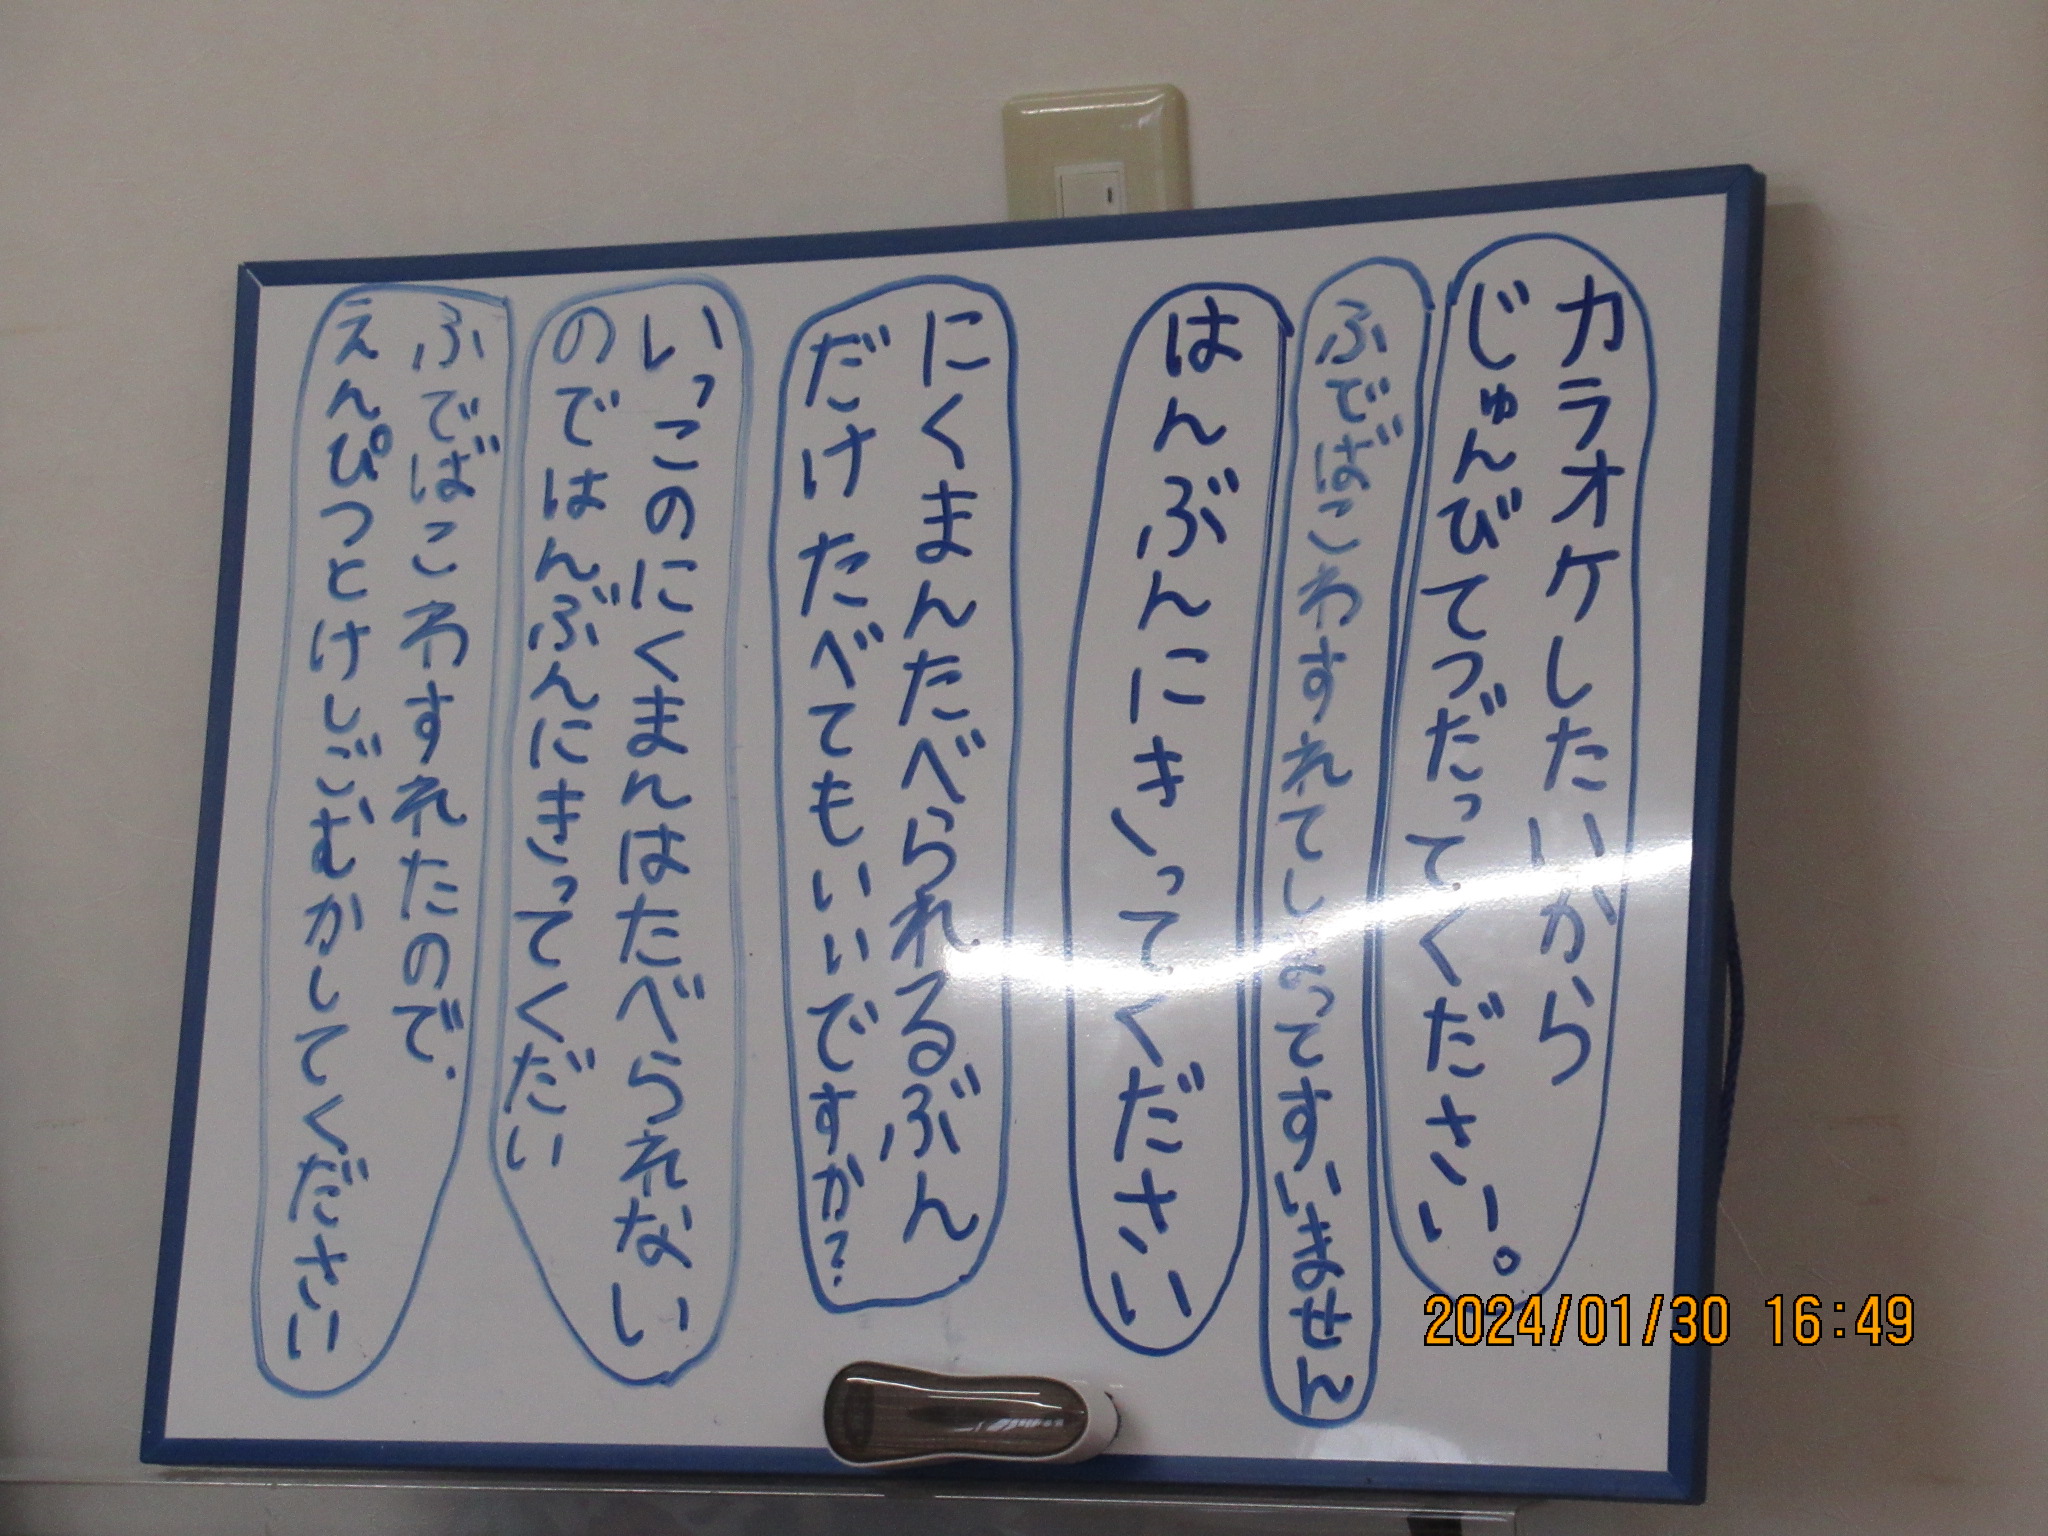 カラオケしたいから
じゅんびてつだってください。
ふでばこわすれてしまってすいません
はんぶんにきってください
にくまんたべられるぶん
だけたべてもいいですか?
いっこのにくまんはたべられない
のではんぶんにきってくだい
ふでばこわすれたので.
えんぴつとけしごむかしてください
2024/01/30 16:49